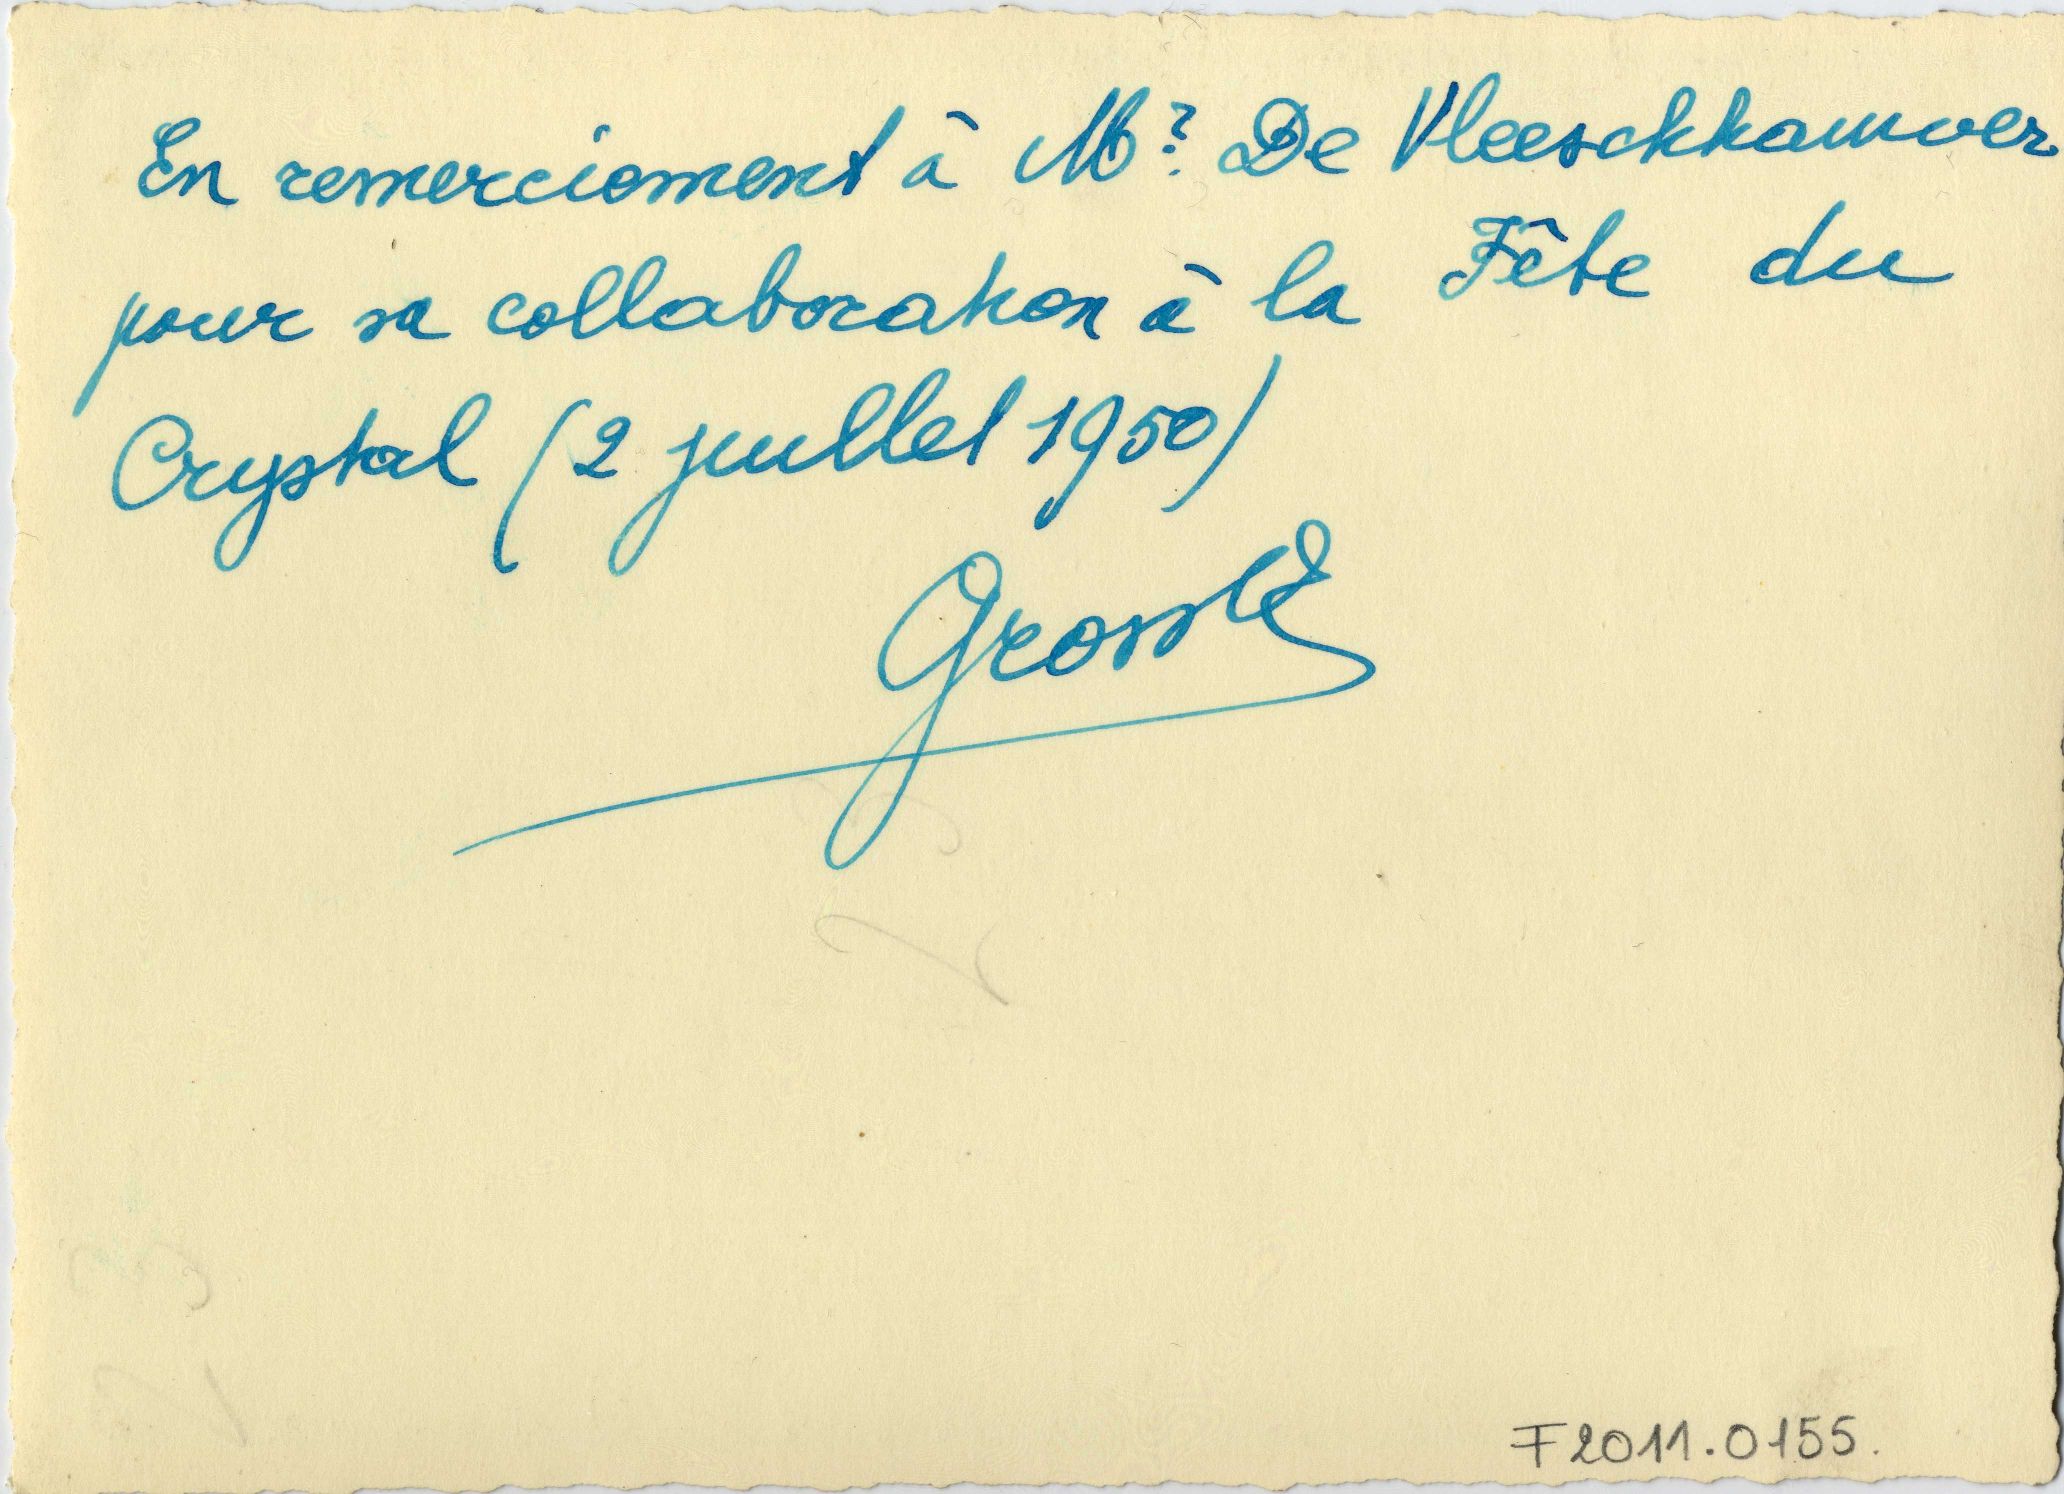 En remerciement à Mr De Vleeschhauwer
pour sa collaboration à la Fête du
Crystal (2 juillet 1950)
Grosslé
F2011.0155.